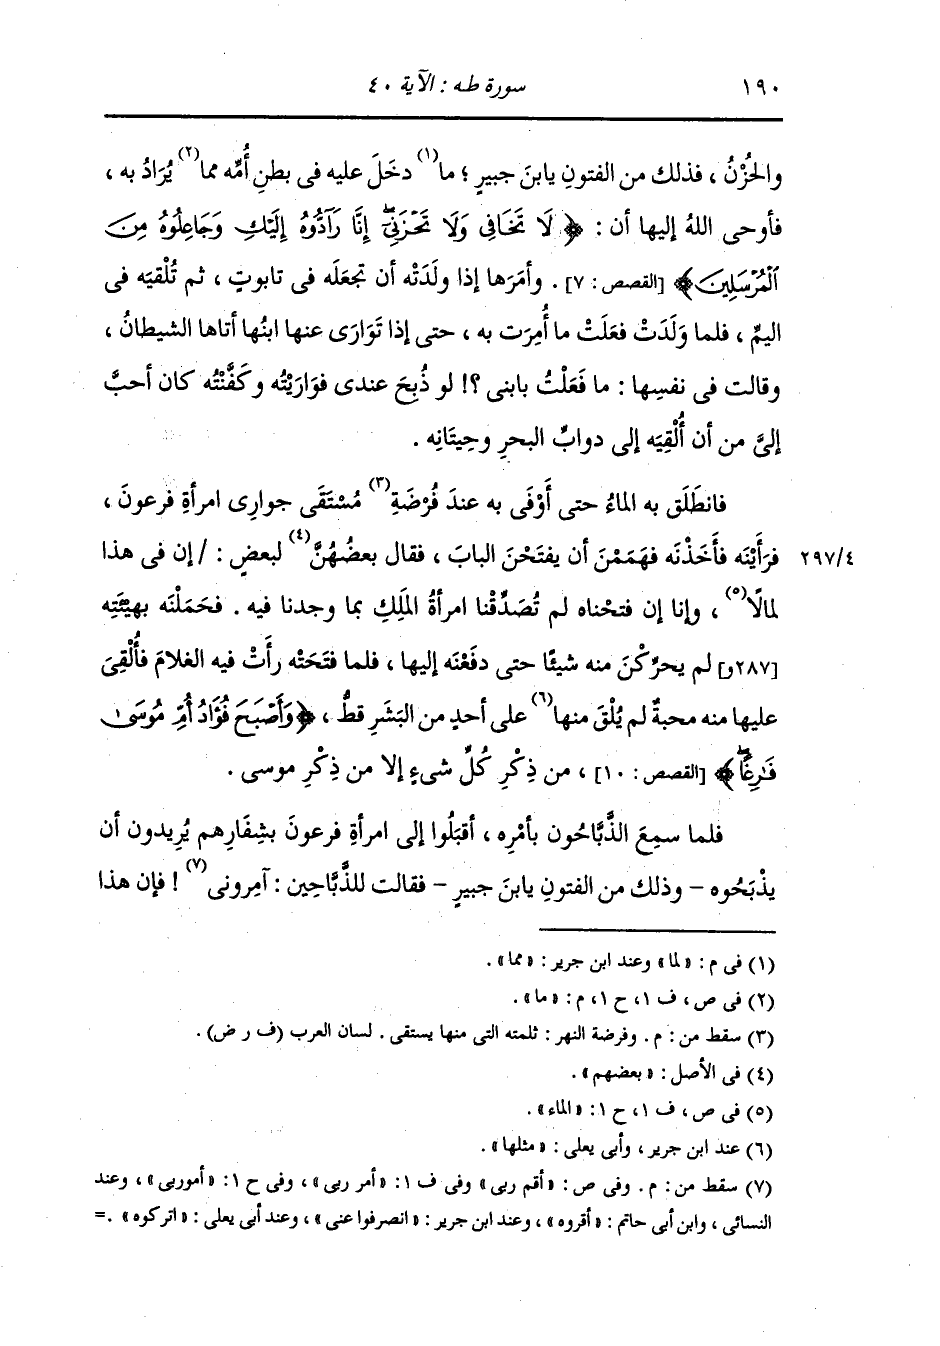 ١٩٠ سورة طه : الآية ٤٠
والحُزْنُ ، فذلك من الفتونِ يابنَ جبيرٍ ؛ ما(١) دخَلَ عليه فى بطنِ أُمِّه مما(٢) يُرَادُ به ،
فأوحى اللهُ إليها أن : ﴿ لَا تَخَافِى وَلَا تَحْزَنِىٓ إِنَّا رَآدُّوهُ إِلَيْكِ وَجَاعِلُوهُ مِنَ
ٱلْمُرْسَلِينَ﴾ [القصص: ٧] . وأمَرَها إذا ولَدَتْه أن تجعَلَه فى تابوتٍ ، ثم تُلْقيَه فى
اليمِّ ، فلما وَلَدَتْ فعَلَتْ ما أُمِرَت به ، حتى إذا تَوَارَى عنها ابنُها أتاها الشيطانُ ،
وقالت فى نفسِها : ما فَعَلْتُ بابنى ؟! لو ذُبِحَ عندى فوَارَيْتُه وكَفَّنْتُه كان أحبَّ
إلىَّ من أن أُلْقِيَه إلى دوابِّ البحرِ وحِيتَانِه .
فانطَلَق به الماءُ حتى أَوْفَى به عندَ فُرْضَةِ(٣) مُسْتَقَى جوارِى امرأةِ فرعونَ ،
٢٩٧/٤ فرَأَيْنَه فأَخَذْنَه فهَمَمْنَ أن يفتَحْنَ البابَ ، فقال بعضُهُنَّ(٤) لبعضٍ : / إن فى هذا
لمالًا(٥) ، وإنا إن فتحْناه لم تُصَدِّقْنا امرأةُ المَلِكِ بما وجدنا فيه . فحَمَلْنَه بهيئَتِه
[٢٨٧و] لم يحرِّكْنَ منه شيئًا حتى دفَعْنَه إليها ، فلما فتَحَتْه رأَتْ فيه الغلامَ فأُلْقِىَ
عليها منه محبةٌ لم يُلْقَ منها(٦) على أحدٍ من البَشَرِ قطُّ ، ﴿وَأَصْبَحَ فُؤَادُ أُمِّ مُوسَىٰ
فَٰرِغًا﴾ [القصص: ١٠] ، من ذِكْرِ كُلِّ شىءٍ إلا من ذِكْرِ موسى .
فلما سمِعَ الذَّبَّاحُون بأمْرِه ، أقبَلُوا إلى امرأةِ فرعونَ بشِفَارِهم يُرِيدون أن
يذْبَحُوه - وذلك من الفتونِ يابنَ جبيرٍ - فقالت للذَّبَّاحِين : آمِرونى(٧) ! فإن هذا
(١) فى م : «لما» وعند ابن جرير : «مما» .
(٢) فى ص ، ف ١، ح ١، م : «ما» .
(٣) سقط من : م . وفرضة النهر : ثلمته التى منها يستقى . لسان العرب (ف ر ض) .
(٤) فى الأصل : «بعضهم» .
(٥) فى ص ، ف ١، ح ١: «الماء» .
(٦) عند ابن جرير ، وأبى يعلى : «مثلها» .
(٧) سقط من : م . وفى ص : «أقم ربى» وفى ف ١: «أمر ربى» ، وفى ح ١: «أموربى» ، وعند
النسائى ، وابن أبى حاتم : «أقروه» ، وعند ابن جرير : «انصرفوا عنى» ، وعند أبى يعلى : «اتركوه» .=